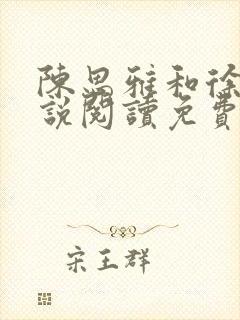 陳思雅和徐
說閱讀免費
宋王群